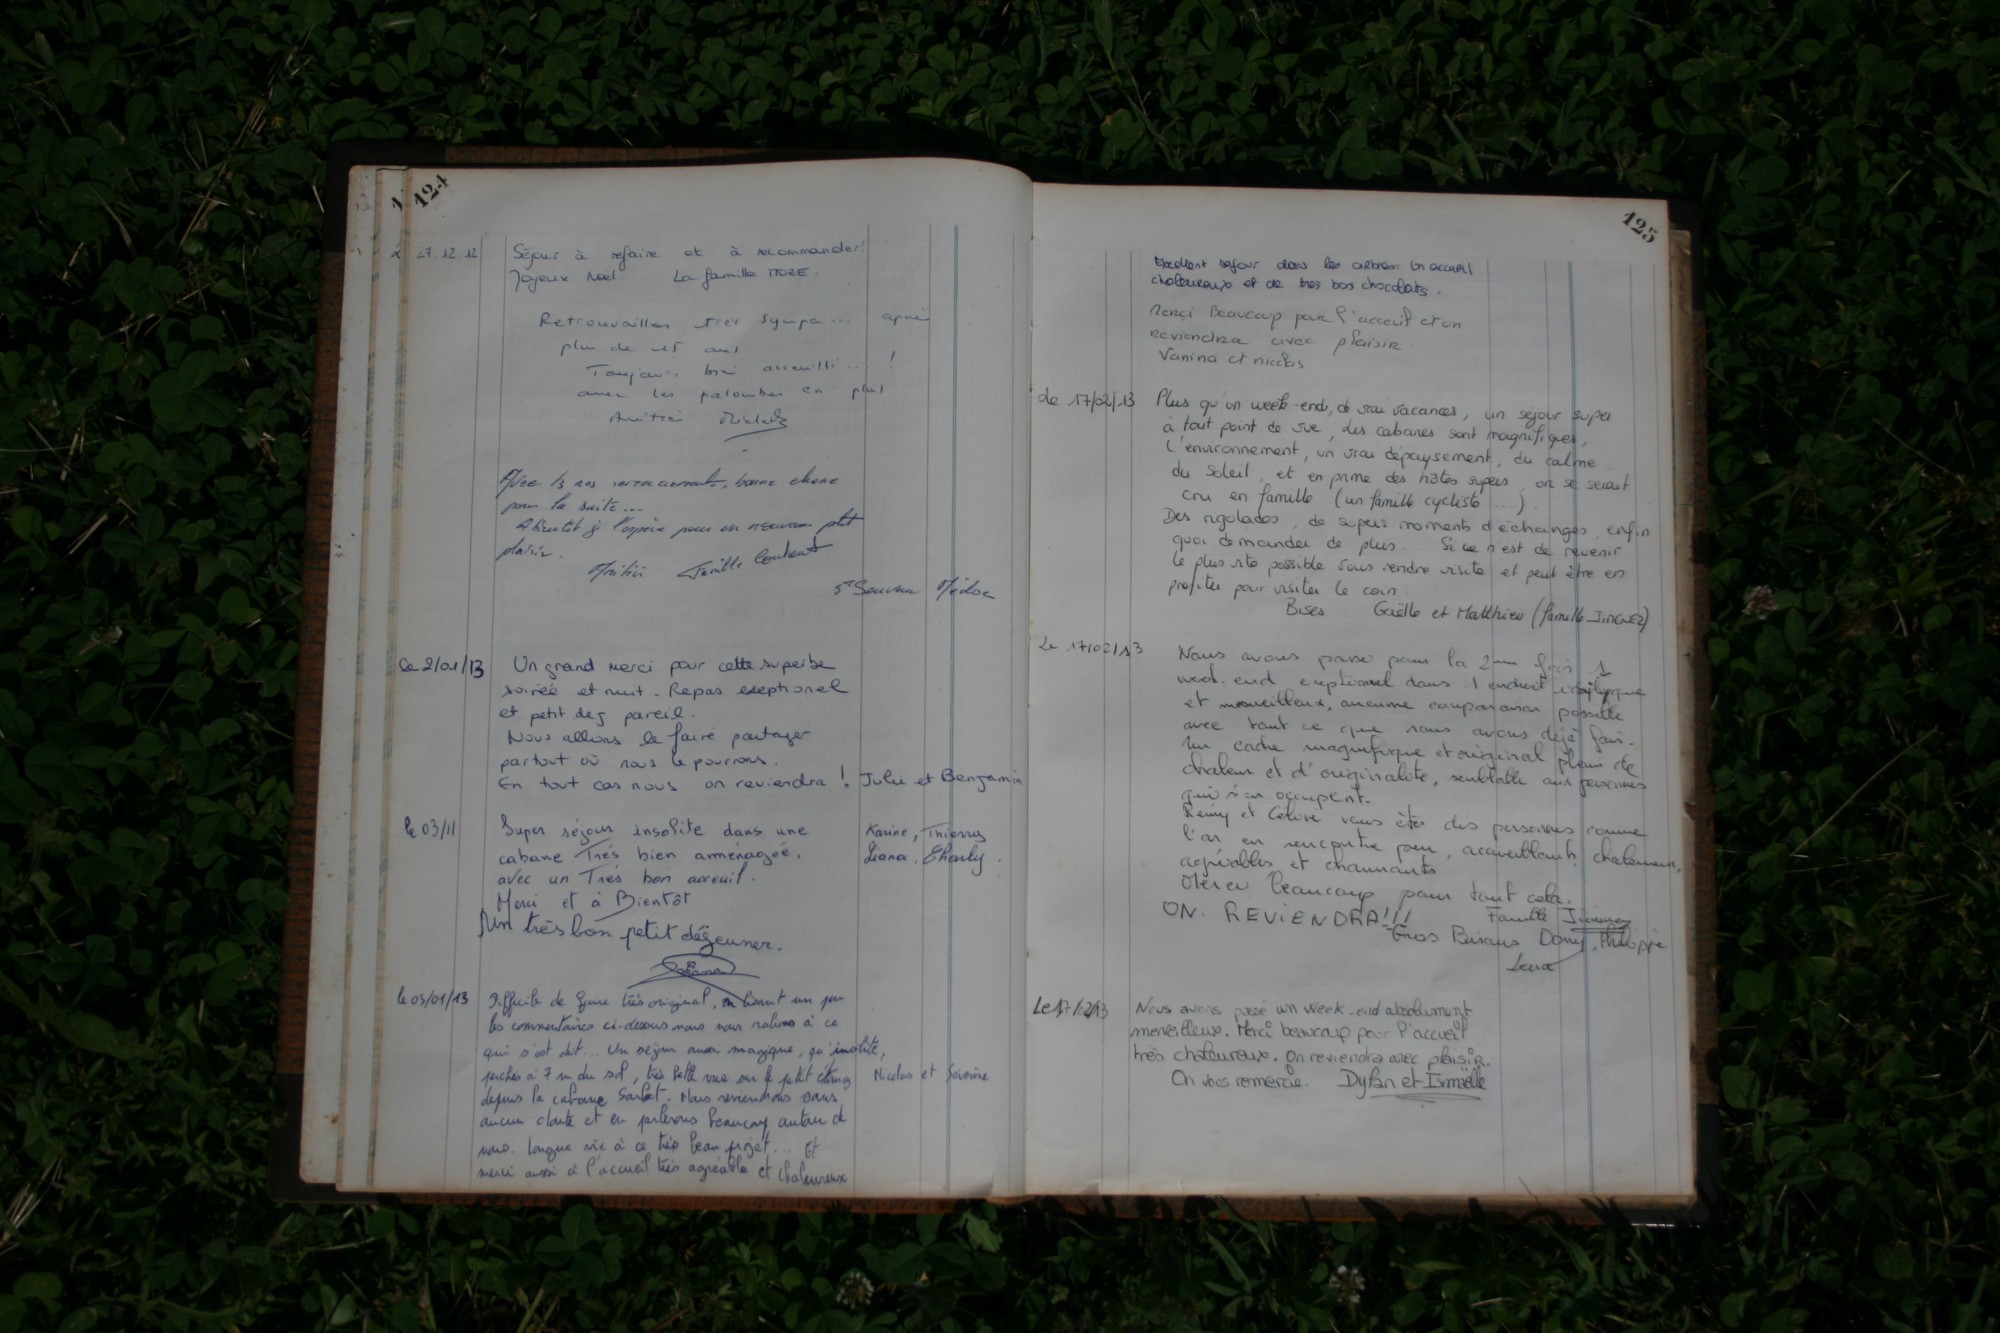 124
27.12.12 Séjour à refaire et à recommander!
Joyeux Noel La famille
Retrouvailles très sympa... après
plus de 15 ans
Toujours bien accueilli... !
avec les palombes en plus
pour la suite...
plaisir.
Famille
St Sauveur Médoc
Le 2/01/13 Un grand merci pour cette superbe
soirée et nuit. Repas exeptionel
et petit dej pareil.
Nous allons le faire partager
partout où nous le pourrons.
En tout cas nous on reviendra ! Julie et Benjamin
le 03/11 Super séjour insolite dans une Karine, Thierry
cabane Très bien aménagée, Léana, Charly.
avec un Très bon acceuil.
Merci et à Bientôt
Un très bon petit déjeuner.
le 03/01/13 Difficile de faire très original, en lisant un peu
les commentaires ci-dessus nous nous rallions à ce
qui s'est dit... Un séjour aussi magique, qu'insolite,
perchés à 7 m du sol, très belle vue sur le petit étang Nicolas et Séverine
depuis la cabane. Nous reviendrons sans
aucun doute et en parlerons beaucoup autour de
nous. Longue vie à ce très beau projet... Et
merci aussi à l'accueil très agréable et chaleureux
125
Excellent sejour dans les arbres. Un accueil
chaleureux et de tres bons chocolats.
Merci Beaucoup pour l'acceuil et on
reviendra avec plaisir
Vanina et nicolas
Le 17/02/13 Plus qu'un week-end, de vrai vacances, un séjour super
à tout point de vue, les cabanes sont magnifiques,
l'environnement, un vrai depaysement, du calme
du soleil, et en prime des hôtes supers, on se serait
cru en famille (un famille cycliste ...)
Des rigolades, de supers moments d'échanges, enfin
quoi demander de plus... Si ce n'est de revenir
le plus vite possible vous rendre visite et peut être en
profiter pour visiter le coin.
Bises Gaëlle et Matthieu (famille
Le 17/02/13 Nous avons passé pour la 2ème fois 1
week.end exptionnel dans 1 endroit idyllique
et merveilleux, aucune comparaison possible
avec tout ce que nous avons déjà fait.
Un cadre magnifique et original plein de
chaleur et d'originalité, semblable aux personnes
qui s'en occupent.
Rémy et vous êtes des personnes comme
l'on en rencontre peu, accueillants, chaleureux,
agréables et charmants
Merci beaucoup pour tout cela.
ON REVIENDRA!!! Famille
Gros Bisous Dany, Philippe
Lena
Le 17/02/13 Nous avons passé un week-end absolument
merveilleux. Merci beaucoup pour l'accueil
très chaleureux. On reviendra avec plaisir.
On vous remercie. Dylan et Ismaëlle